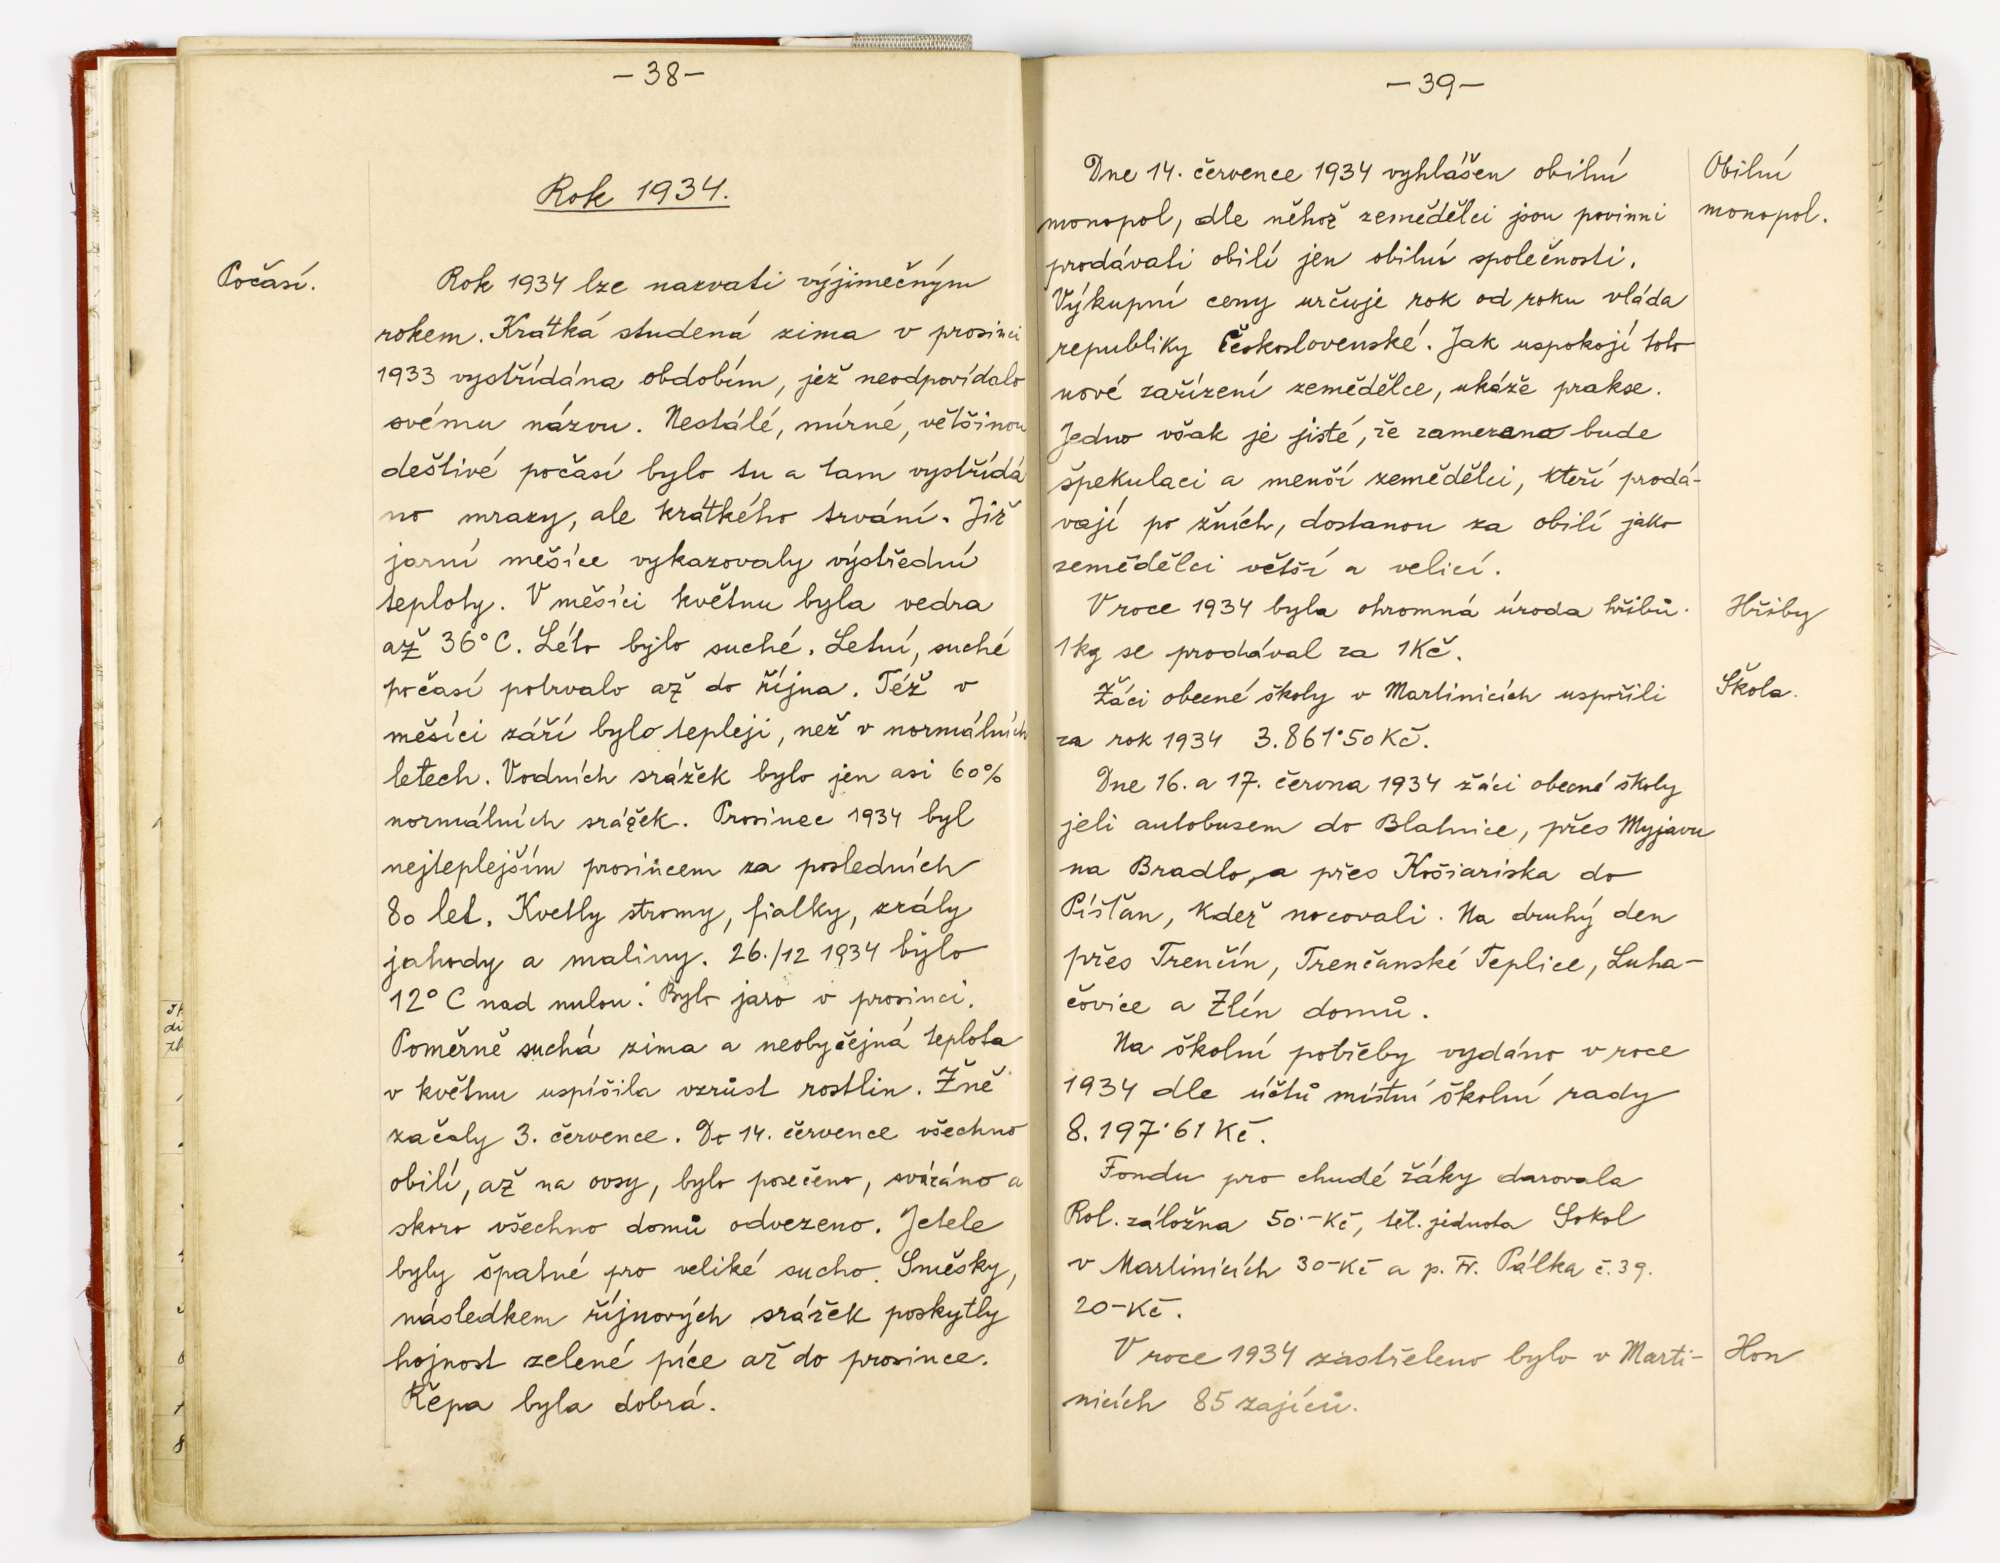 -38-
Rok 1934.
Počasí.
Rok 1934 lze nazvati výjimečným
rokem. Krátká studená zima v prosinci
1933 vystřídána obdobím, jež neodpovídalo
svému názvu. Nestálé, mírné, většinou
deštivé počasí bylo tu a tam vystřídá
no mrazy, ale krátkého trvání. Již
jarní měsíce vykazovaly výstřední
teploty. V měsíci květnu byla vedra
až 36° C. Léto bylo suché. Letní, suché
počasí potrvalo až do října. Též v
měsíci září bylo tepleji, než v normálních
letech. Vodních srážek bylo jen asi 60%
normálních srážek. Prosinec 1934 byl
nejteplejším prosincem za posledních
80 let. Kvetly stromy, fialky, zrály
jahody a maliny. 26./12 1934 bylo
12° C nad nulou. Bylo jaro v prosinci.
Poměrně suchá zima a neobyčejná teplota
v květnu uspíšila vzrůst rostlin. Žně
začaly 3. července. Do 14. července všechno
obilí, až na ovsy, bylo posečeno, svázáno a
skoro všechno domů odvezeno. Jetele
byly špatné pro veliké sucho. Směsky,
následkem říjnových srážek poskytly
hojnost zelené píce až do prosince.
Řepa byla dobrá.
-39-
Dne 14. července 1934 vyhlášen obilní
Obilní
monopol, dle něhož zemědělci jsou povinni
monopol.
prodávati obilí jen obilní společnosti.
Výkupní ceny určuje rok od roku vláda
republiky Československé. Jak uspokojí toto
nové zařízení zemědělce, ukáže prakse.
Jedno však je jisté, že zamezeno bude
špekulaci a menší zemědělci, kteří prodá-
vají po žních, dostanou za obilí jako
zemědělci větší a velicí.
V roce 1934 byla ohromná úroda hřibů.
Hřiby
1 kg se prodával za 1 Kč.
Žáci obecné školy v Martinicích uspořili
Škola.
za rok 1934 3.861·50 Kč.
Dne 16. a 17. června 1934 žáci obecné školy
jeli autobusem do Blatnice, přes Myjavu
na Bradlo, a přes Košiariska do
Píšťan, kdež nocovali. Na druhý den
přes Trenčín, Trenčanské Teplice, Luha-
čovice a Zlín domů.
Na školní potřeby vydáno v roce
1934 dle účtů místní školní rady
8.197·61 Kč.
Fondu pro chudé žáky darovala
Rol. záložna 50·- Kč, těl. jednota Sokol
v Martinicích 30-Kč a p. Fr. Pálka č. 39.
20-Kč.
V roce 1934 zastřeleno bylo v Marti-
Hon
nicích 85 zajíců.